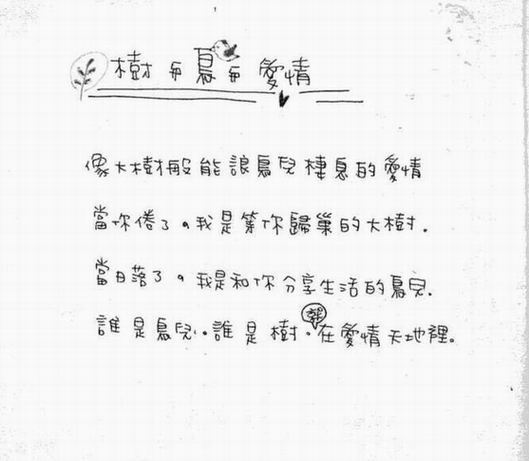 樹 ㄉ 鳥 ㄉ 愛情
像大樹般能讓鳥兒棲息的愛情
當你倦了。我是等你歸巢的大樹.
當日落了。我是和你分享生活的鳥兒.
誰是鳥兒..誰是樹.都在愛情天地裡。